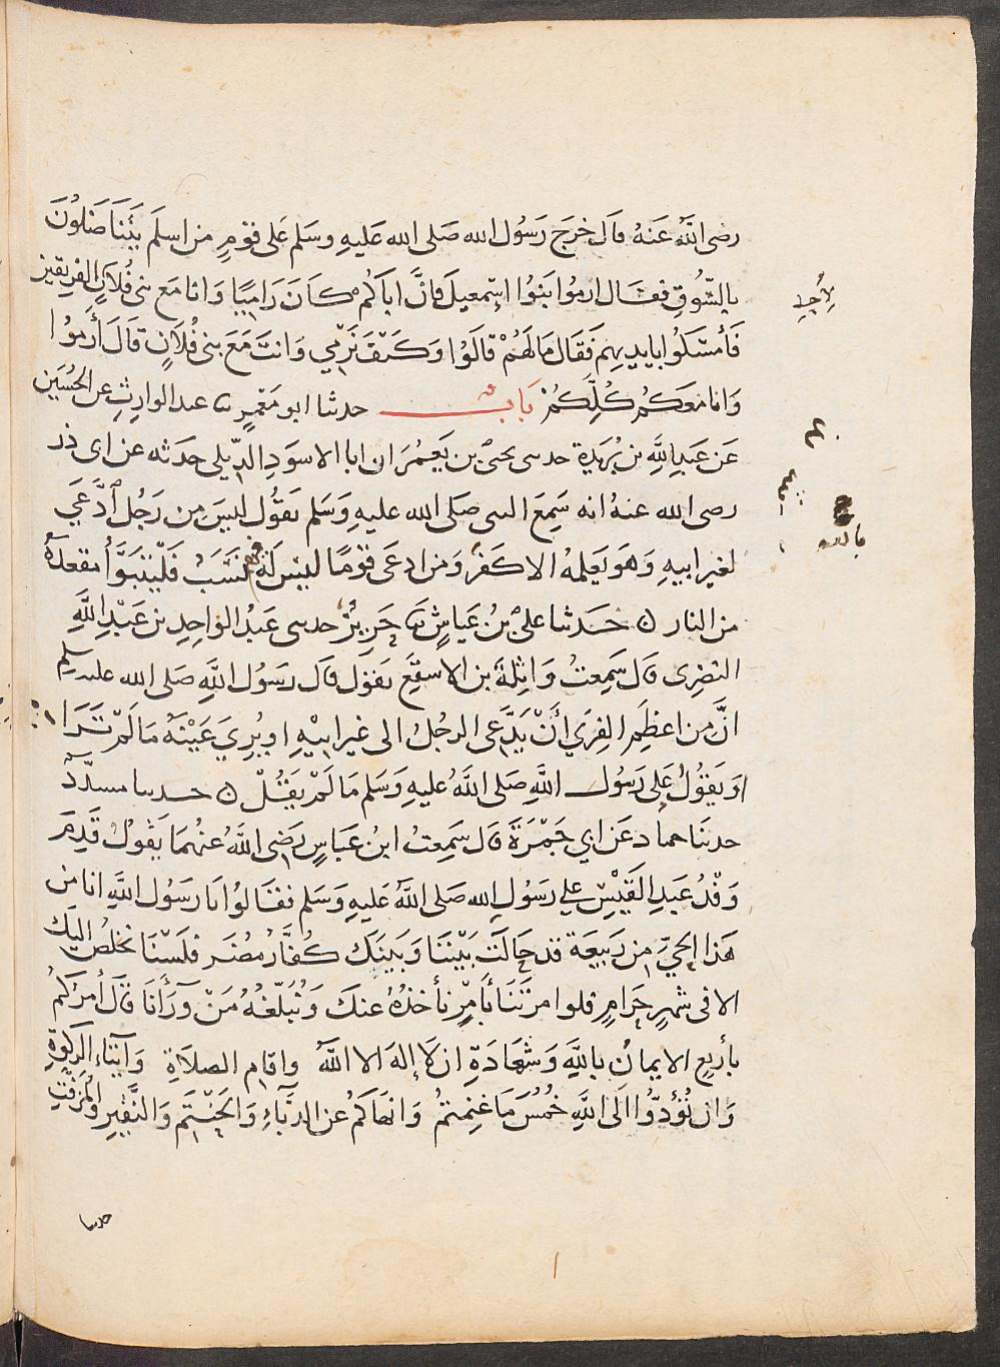 رضى الله عنهُ قال خرج رَسُول الله صَلى الله عَليهِ وسَلم عَلى قوْمٍ من اسلَم يتَنَاضَلوُنَ
بالسُّوقِ فقال ارمُوا بَنوُا إسْمعيلَ فانَّ اباكُم كانَ رَاميًا وَانا مَع بنى فُلانٍ لاَحِدِ الفريقين
فأمسَكوُا بايديهِم فقَال مَا لهُمْ قالوُا وَكيفَ نَرْمي وَانتَ مَعَ بنى فُلاَنٍ قالَ أرمُوا
وَانا مَعَكم كُلِّكُمْ بَابٌ حدثنا ابو مَعْمرٍ نا عبد الوارثِ عن الحُسَين
عَن عَبدِ اللَّهِ بن بُرَيدة حدثنى يحيى بن يَعْمُرَ ان ابا الاسوَدِ الدّيلى حَدثه عن ابى ذر
رضى الله عنهُ انه سَمِعَ النبى صَلى الله عليهِ وَسَلم يقوُل ليسَ مِن رَجُل ادَّعَي
لغير ابيهِ وَهوَ يَعلمهُ الا كفرَ وَمَن ادعَى قوْمًا ليْسَ لهُ فيهم نسَبٌ فَلْيتبَوَّأْ مقعدهُ
من النار ٥ حَدثنا علىُّ بنُ عَياشٍ نا حَرِيزٌ حدثنى عَبدُ الواحِدِ بن عَبْدِ اللَّهِ
النصْرِى قال سَمِعتُ وَاثِلةَ بن الاسقَعِ يقوَل قال رسَوُل اللَّهِ صَلى الله عليه وسلم
انَّ مِن اعظَمِ الفِرَي أنْ يَدَّعى الرجُلُ الى غير ابيْهِ او يُرِيَ عَيْنَهُ مَا لَمْ تَرَا
اوَ يَقوُلُ عَلى رَسُول اللَّهِ صَلى اللَّهُ عليهِ وَسَلم مَا لَمْ يَقُلْ ٥ حدثنا مسدّدٌ
حدثنَا حماد عَن ابي جَمْرَةَ قال سَمِعتُ ابنَ عَباسٍ رَضى اللَّهُ عنهُمَا يَقوُلُ قَدِمَ
وَفْدُ عَبدِ القَيْسِ علي رسَوُلِ الله صَلى اللَّهُ عَليهِ وَسَلم فقَالوُا يَا رَسوُل اللَّهِ انا من
هَذا الحيِّ من رَبيعَة قد حَالَتْ بَيْننَا وَبينَك كُفَّارُ مُضَر فلَسْنَا نخلصُ اليْك
الا فى شهرٍ حَرامٍ فلوا مرتَنَا بأمْرٍ نأخذهُ عنكَ وَنُبلّغهُ مَنْ وَرَآنَا قالَ أمركمُ
بأربعٍ الايمانُ باللَّهِ وَشَهَادَةِ ان لا إلهَ الا اللَّهُ واقام الصلاَةِ وَآيتاء الزكوةِ
وَان تُؤدّوُا الَى اللَّهِ خُمُسَ مَا غنِمتمُ وَانهاكمُ عن الدُبَّاءِ وَالحَنْتَم وَالنَّقيرِ وَالمُزَفّتِ
حدثنا